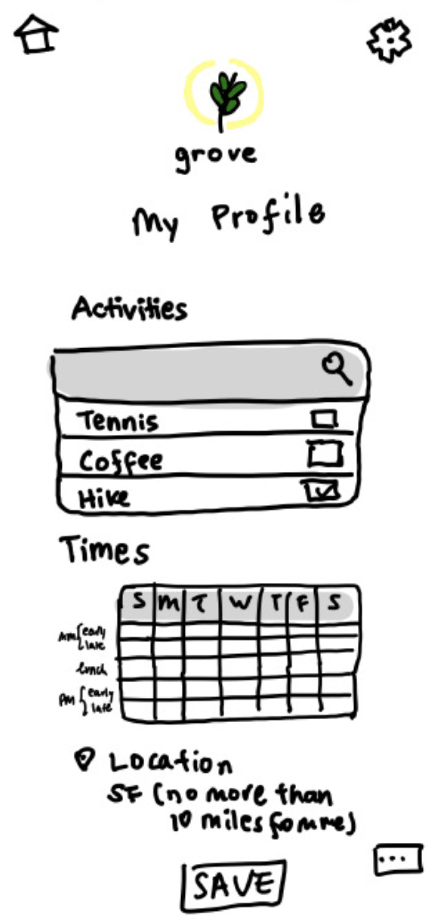 grove
My Profile
Activities
Tennis
Coffee
Hike
Times
S M T W T F S
AM early
late
lunch
PM early
late
Location
SF (no more than
10 miles fomme)
SAVE